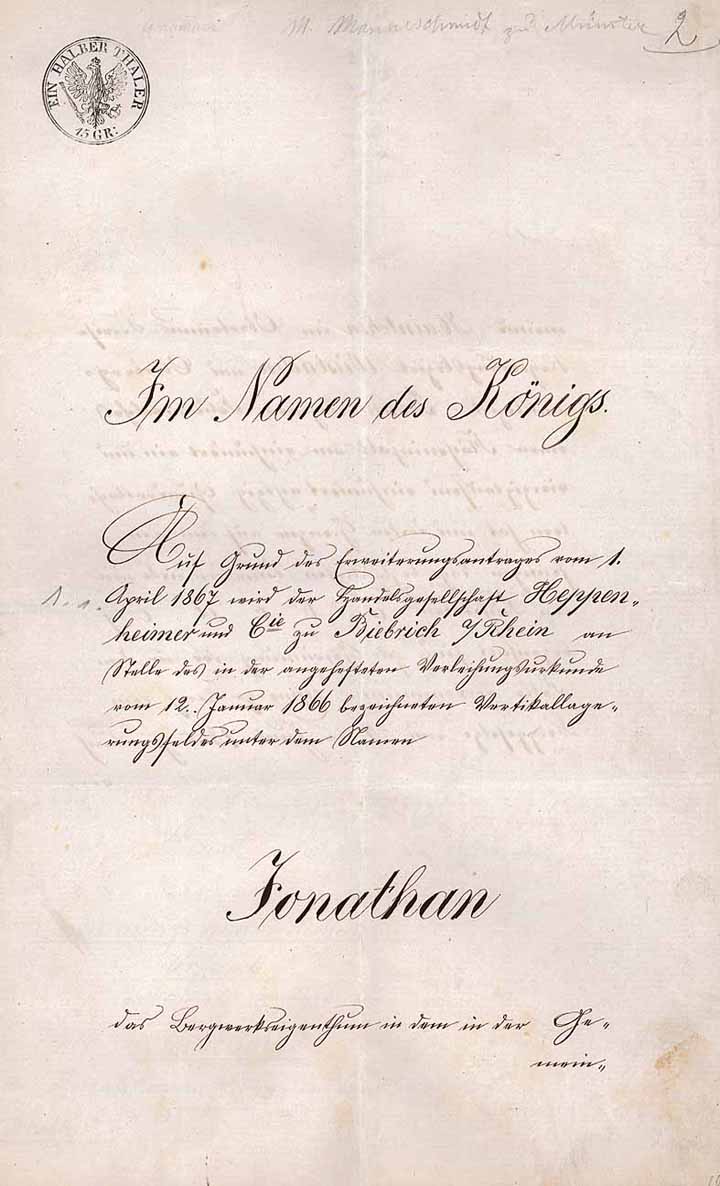 M. Mannesschmidt zu Münster
2
EIN HALBER THALER
15 GR:
Im Namen des Königs.
Auf Grund des Erweiterungsantrages vom 1.
April 1867 wird der Handelsgesellschaft Heppen„
heimer und Cie zu Biebrich a/Rhein an
Stelle des in der angehefteten Verleihungsurkunde
vom 12. Januar 1866 bezeichneten Vertikallage„
rungsfeldes unter dem Namen
Jonathan
das Bergwerkseigenthum in dem in der Ge„
mein„